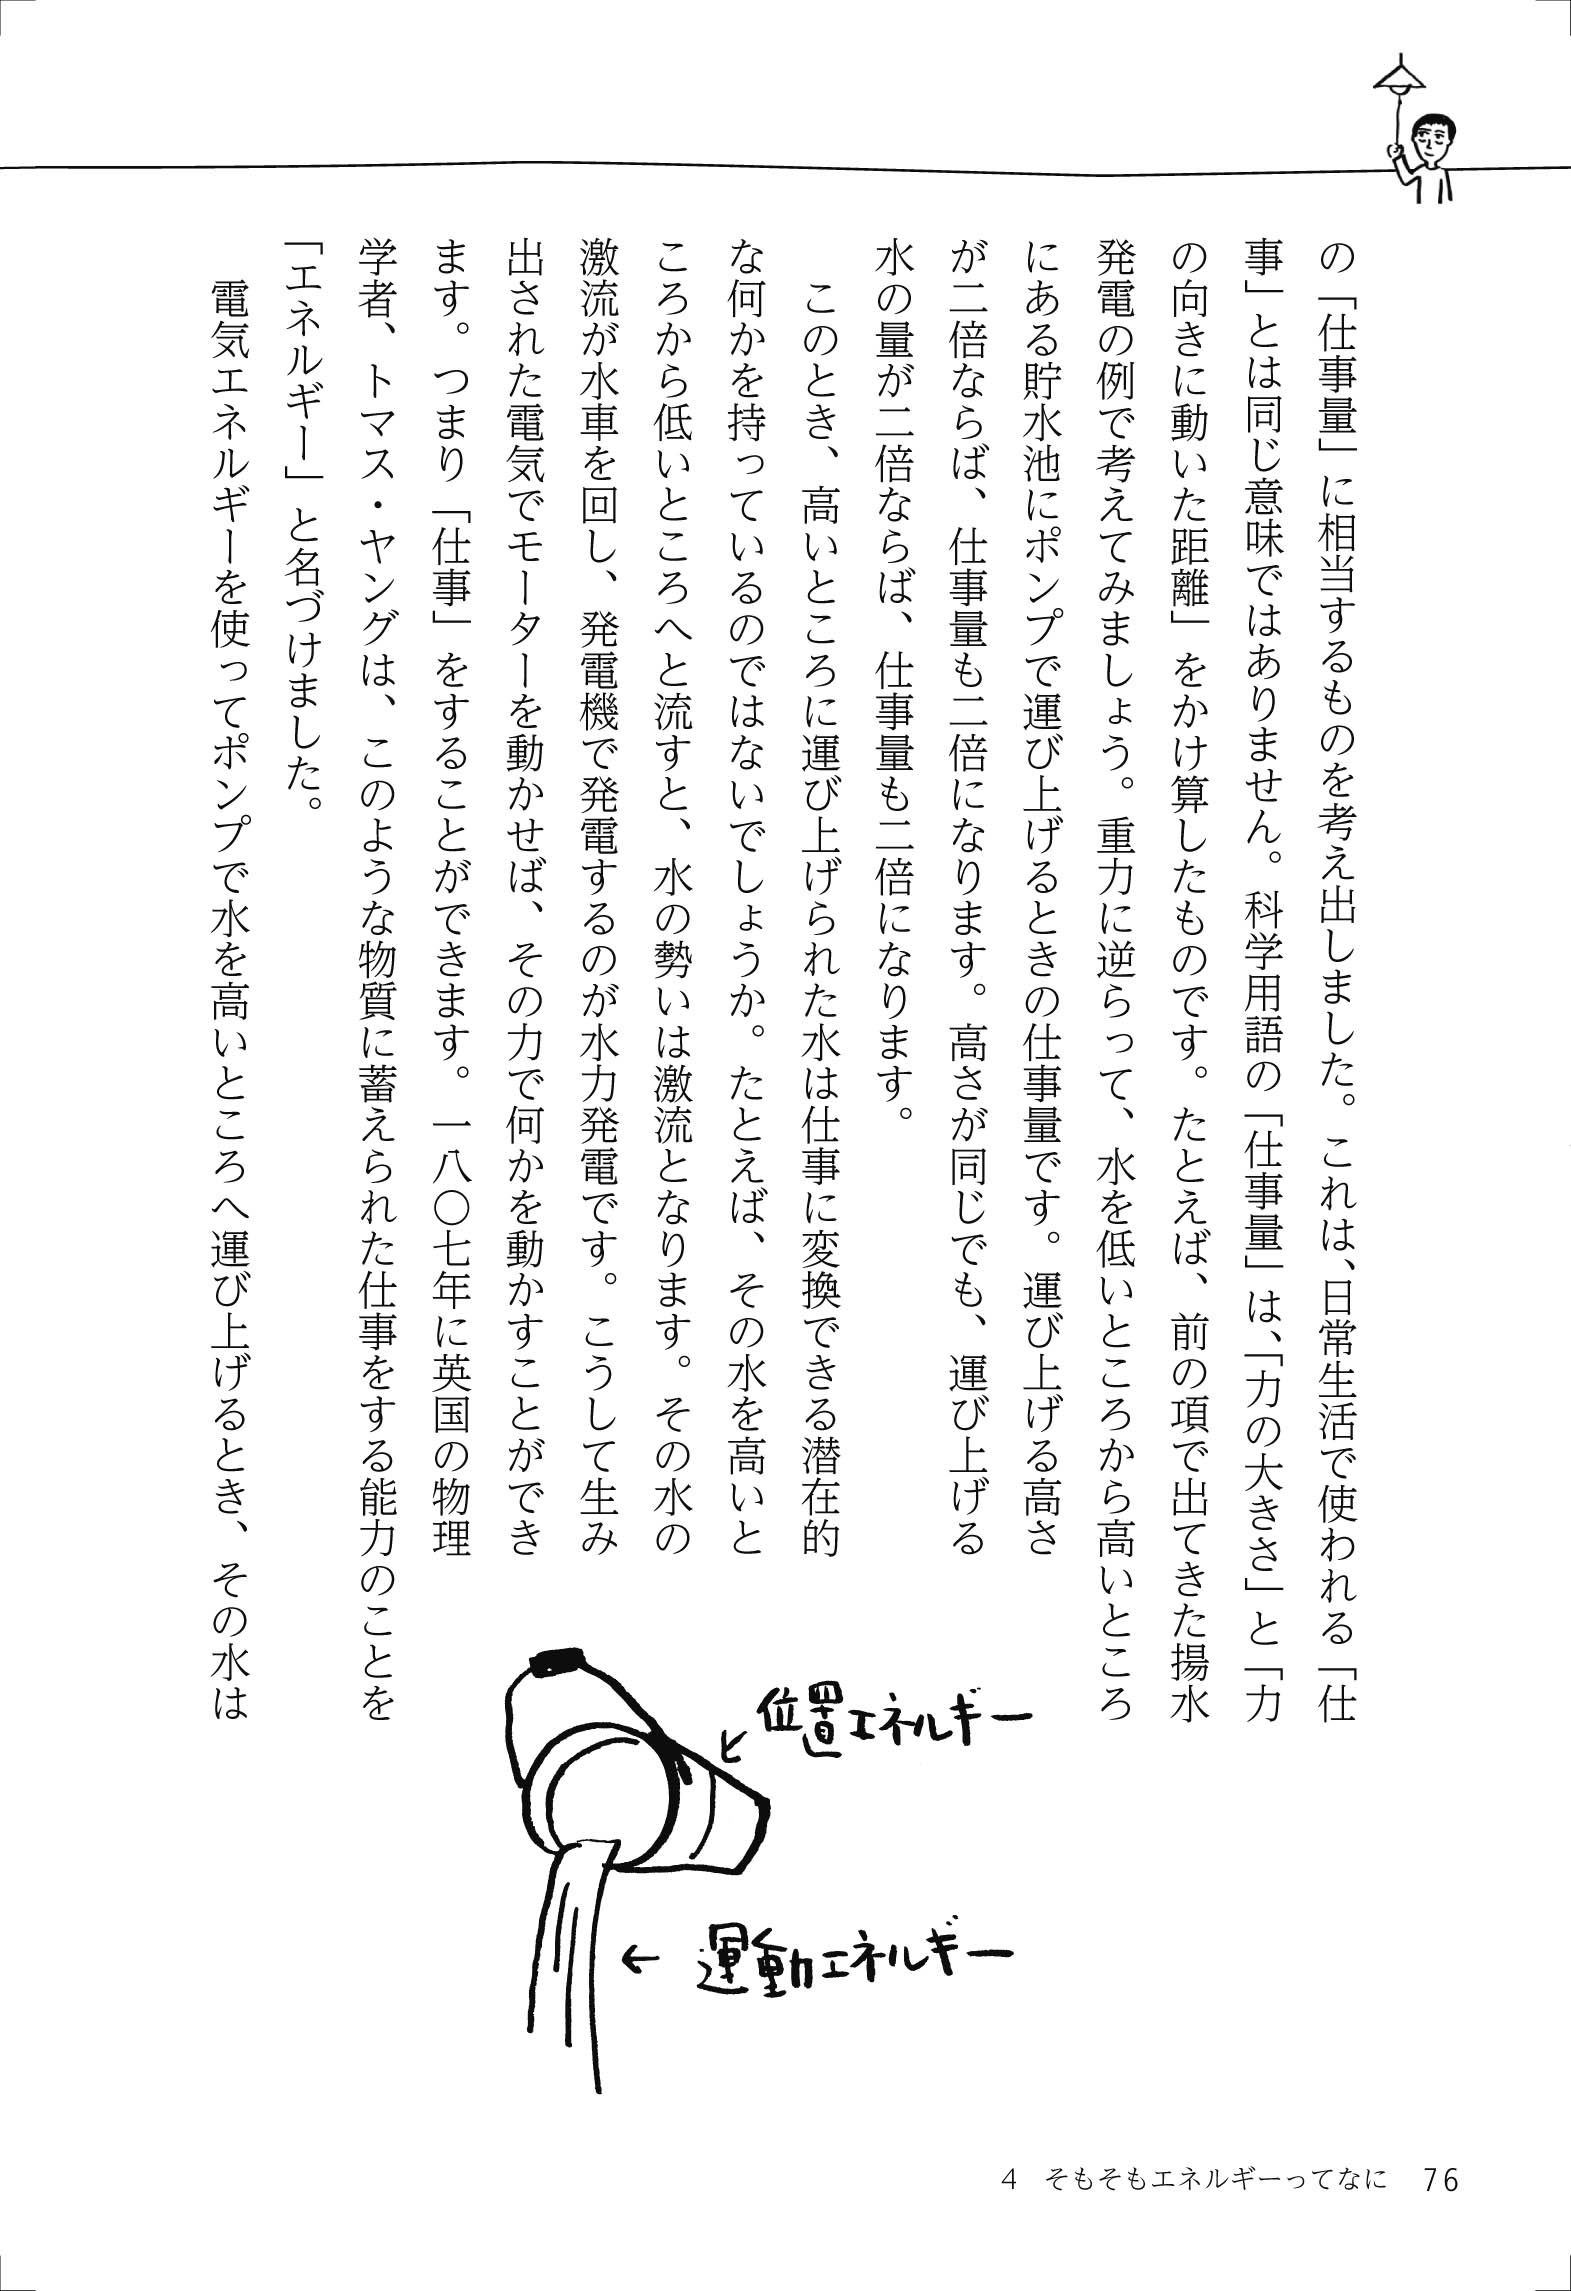 の「仕事量」に相当するものを考え出しました。これは、日常生活で使われる「仕
事」とは同じ意味ではありません。科学用語の「仕事量」は、「力の大きさ」と「力
の向きに動いた距離」をかけ算したものです。たとえば、前の項で出てきた揚水
発電の例で考えてみましょう。重力に逆らって、水を低いところから高いところ
にある貯水池にポンプで運び上げるときの仕事量です。運び上げる高さ
が二倍ならば、仕事量も二倍になります。高さが同じでも、運び上げる
水の量が二倍ならば、仕事量も二倍になります。
このとき、高いところに運び上げられた水は仕事に変換できる潜在的
な何かを持っているのではないでしょうか。たとえば、その水を高いと
ころから低いところへと流すと、水の勢いは激流となります。その水の
激流が水車を回し、発電機で発電するのが水力発電です。こうして生み
出された電気でモーターを動かせば、その力で何かを動かすことができ
ます。つまり「仕事」をすることができます。一八〇七年に英国の物理
学者、トマス・ヤングは、このような物質に蓄えられた仕事をする能力のことを
「エネルギー」と名づけました。
電気エネルギーを使ってポンプで水を高いところへ運び上げるとき、その水は
位置エネルギー
運動エネルギー
4 そもそもエネルギーってなに 76